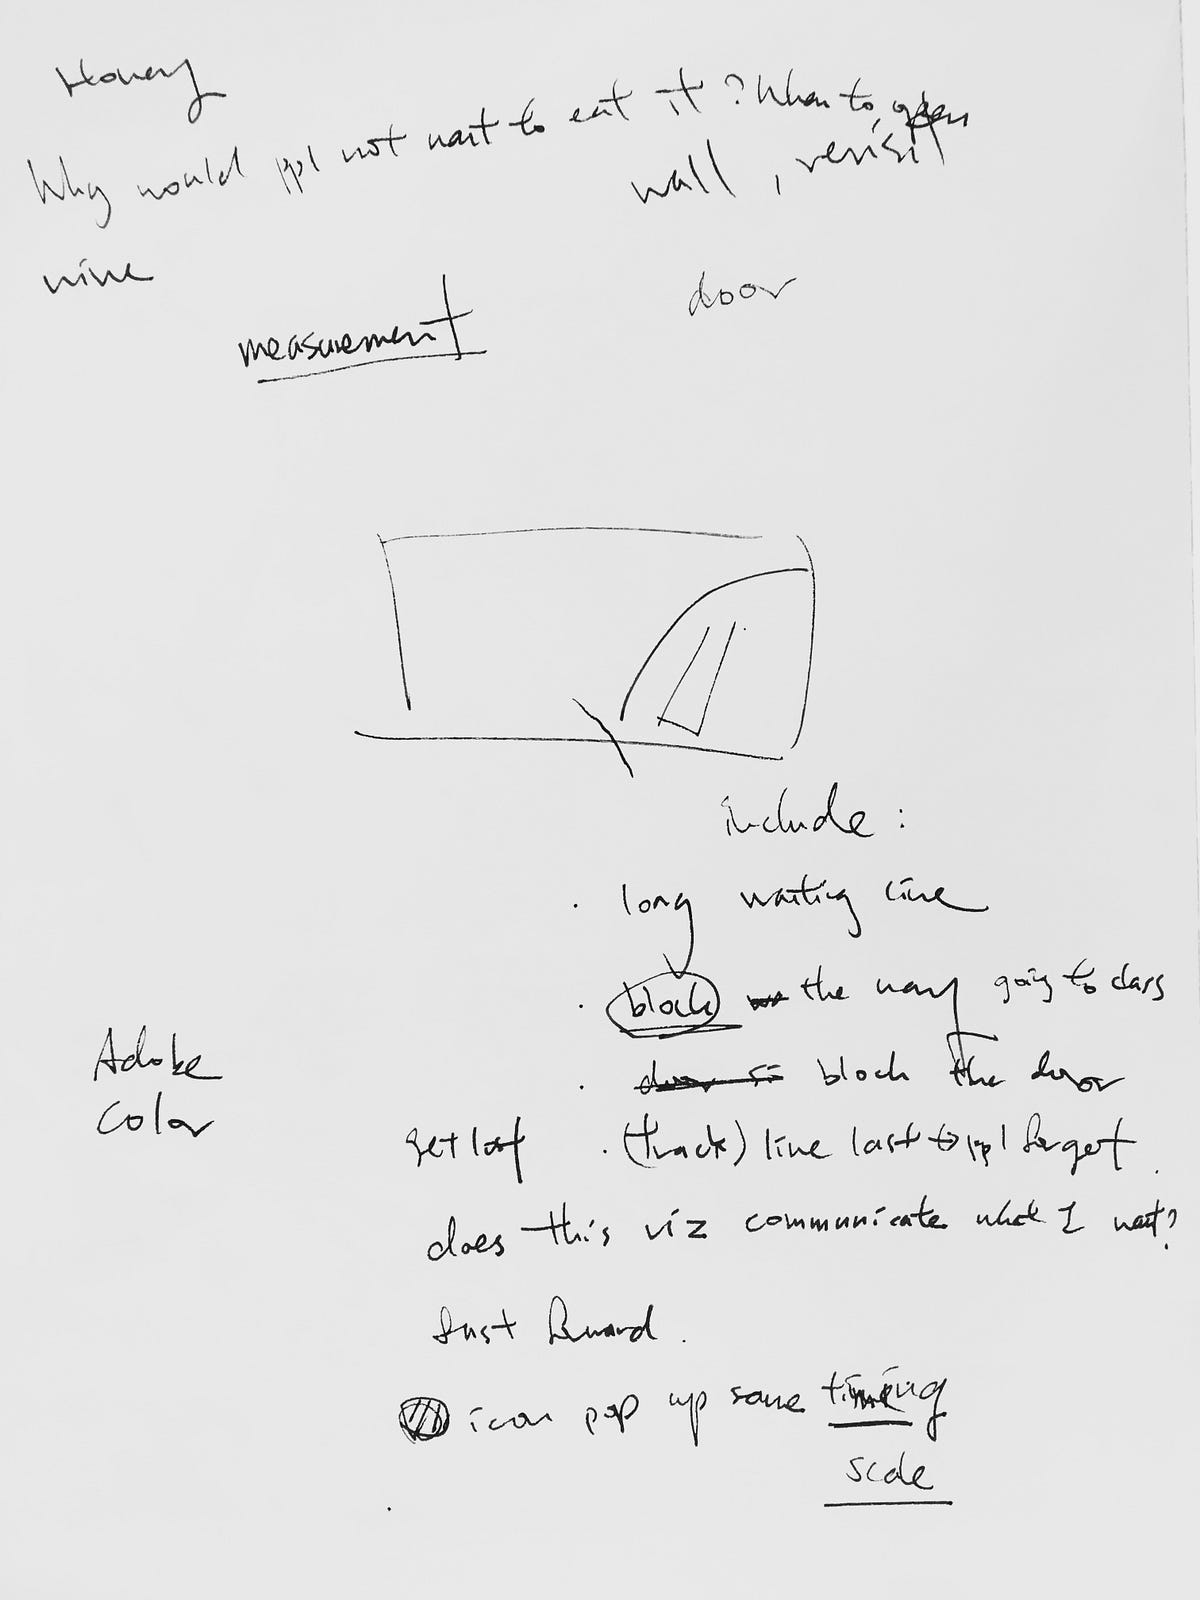 Honey
Why would ppl not want to eat it? When to open
wall, revisit
nine
door
measurement
include:
· long waiting line
· block the way going to class
· block the door
get lost · (track) line last to ppl forget
does this viz communicate what I want?
Adobe
Color
fast forward.
icon pop up same timing
scale